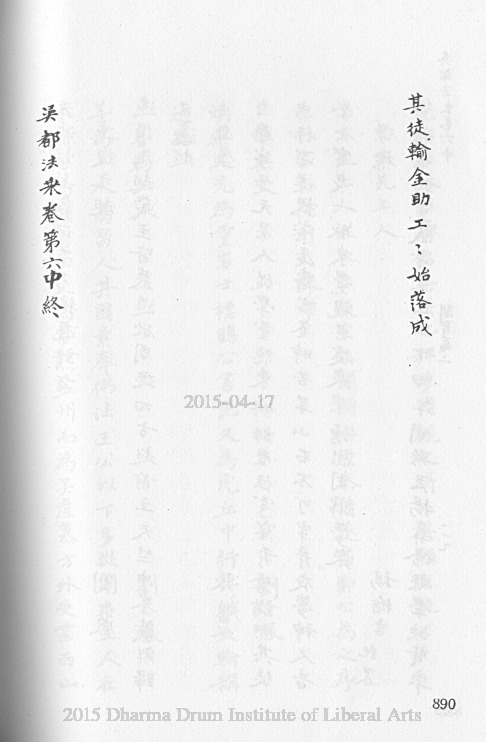 其徒輸金助工〻始落成
吳都法乘卷第六中終
2015-04-17
890
2015 Dharma Drum Institute of Liberal Arts